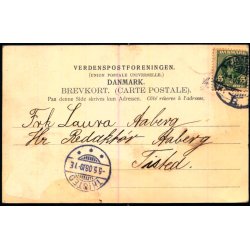 VERDENSPOSTFORENINGEN.
(UNION POSTALE UNIVERSELLE.)
DANMARK.
BREVKORT. (CARTE POSTALE).
Paa denne Side skrives kun Adressen. Côté réservé à l'adresse.
Frk Laura Aaberg
Hr. Redaktør Aaberg
Tisted.
THISTED